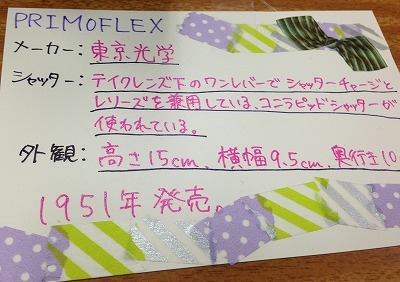 PRIMOFLEX
メーカー：東京光学
シャッター：テイクレンズ下のワンレバーでシャッターチャージと
レリーズを兼用している、コニラピッドシャッターが
使われている。
外観：高さ15cm、横幅9.5cm、奥行き10
1951年発売。